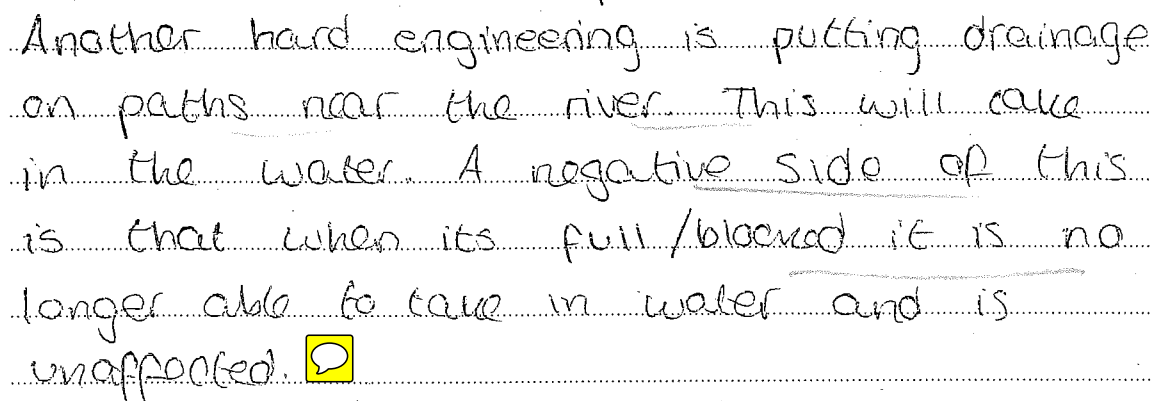 Another hard engineering is putting drainage
on paths near the river. This will take
in the water. A negative side of this
is that when its full/blocked it is no
longer able to take in water and is
unaffected.